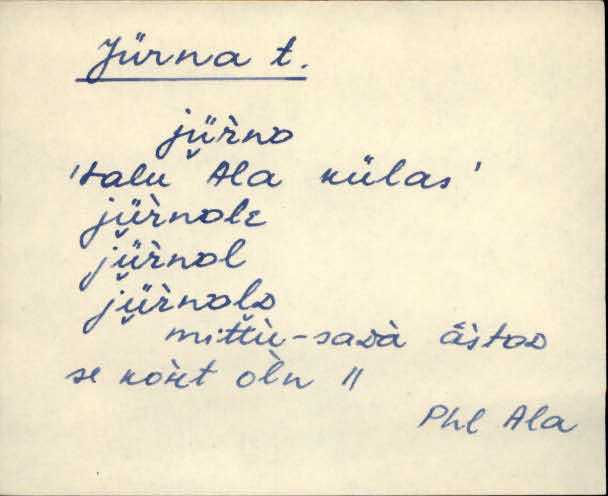 Jürna t.
jür̀nᴅ
'talu Ala külas'
jür̀nᴅle
jür̀nᴅl
jür̀nᴅlᴅ
mittù-saᴅà äs̀tᴅᴅ
se kòht òl̀n ॥
Phl Ala